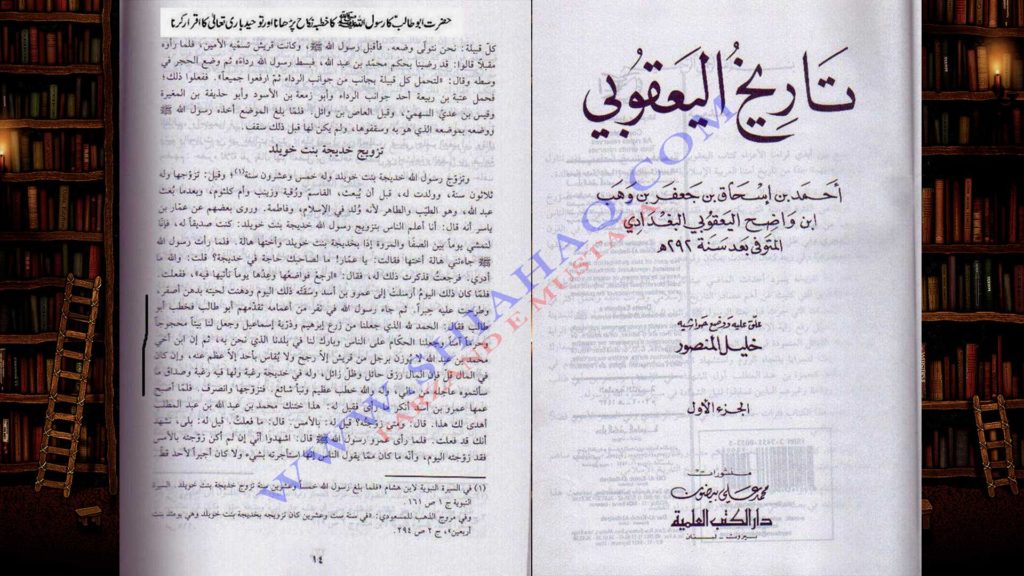 حضرت ابوطالبؑ کا رسول اللہ ﷺ کا خطبہ نکاح پڑھانا اور توحید باری تعالیٰ کا اقرار کرنا
كلّ قبيلة: نحن نتولّى وضعه. فأقبل رسول الله ﷺ، وكانت قريش تسمّيه الأمين، فلما رأوه
مقبلاً قالوا: قد رضينا بحكم محمّد بن عبد الله، فبسط رسول الله رداءه ثم وضع الحجر في
وسطه وقال: «لتحمل كل قبيلة بجانب من جوانب الرداء ثمّ ارفعوا جميعاً». ففعلوا ذلك؛
فحمل عتبة بن ربيعة أحد جوانب الرداء وأبو زمعة بن الأسود وأبو حذيفة بن المغيرة
وقيس بن عديّ السهميّ، وقيل: العاص بن وائل. فلمّا بلغ الموضع أخذه رسول الله
ﷺ ووضعه بموضعه الذي هو به وسقفوها، ولم يكن لها قبل ذلك سقف.
تزويج خديجة بنت خويلد
وتزوّج رسول الله خديجة بنت خويلد وله خمس وعشرون سنة(١) وقيل: تزوّجها وله
ثلاثون سنة، وولدت له، قبل أن يُبعث، القاسم ورُقية وزينب وأم كلثوم، وبعدما بُعث
عبد الله، وهو الطيّب والطاهر لأنه وُلد في الإسلام، وفاطمة. وروى بعضهم عن عمّار بن
ياسر أنه قال: أنا أعلم الناس بتزويج رسول الله خديجة بنت خويلد: كنت صديقاً له، فإنا
لنمشي يوماً بين الصفا والمروة إذا بخديجة بنت خويلد وأختها هالة. فلما رأت رسول الله
ﷺ جاءتني هالة أختها فقالت: يا عمّار! ما لصاحبك حاجة في خديجة؟ قلت: والله ما
أدري. فرجعتُ فذكرت ذلك له، فقال: «ارجع فواضعها وعِدْها يوماً نأتيها فيه»، ففعلت.
فلمّا كان ذلك اليومُ أرسلت إلى عمرو بن أسد وسقته ذلك اليوم ودهنت لحيته بدهن أصفر،
وطرحت عليه حبراً. ثم جاء رسول الله في نفر من أعمامه تقدّمهم أبو طالب فخطب أبو
طالب فقال: الحمد لله الذي جعلنا من زرع إبراهيم وذرّية إسماعيل وجعل لنا بيتاً محجوجاً
وحرماً آمناً وجعلنا الحكّام على الناس وبارك لنا في بلدنا الذي نحن به، ثم إن ابن أخي
محمد بن عبد الله لا يُوزن برجل من قريش إلاّ رجح ولا يُقاس بأحد إلاّ عظم عنه، وإن كان
في المال قلّ فإن المال رزق حائل وظلّ زائل، وله في خديجة رغبة ولها فيه رغبة وصداق ما
سألتموه عاجله من مالي، وله والله خطب عظيم ونبأ شائع. فتزوجها وانصرف. فلمّا أصبح
عمها عمرو بن أسد أنكر ما رأى فقيل له: هذا ختنك محمد بن عبد الله بن عبد المطلب
أهدى لك هذا. قال: ومتى زوّجته؟ قيل له: بالأمس. قال: ما فعلتُ. قيل له: بلى، نشهد
أنك قد فعلت. فلما رأى عمرو رسول الله ﷺ قال: اشهدوا أني إن لم أكن زوّجته بالأمس
فقد زوّجته اليوم، وأنّه ما كان ممّا يقول الناس إنها استأجرته بشيء ولا كان أجيراً لأحد قط.
(١) في السيرة النبوية لابن هشام «فلما بلغ رسول الله خمساً وعشرين سنة تزوج خديجة بنت خويلد. السيرة
النبوية ج ١ ص ١٦١.
وفي مروج الذهب للمسعودي: «في سنة ست وعشرين كان تزويجه بخديجة بنت خويلد وهي يومئذ بنت
أربعين»، ج ٢ ص ٢٩٤.
١٤
تاريخ اليعقوبي
أحمد بن إسحاق بن جعفر بن وهب
ابن واضح اليعقوبي البغدادي
المتوفى بعد سنة ٢٩٢هـ
علّق عليه ووضع حواشيه
خليل المنصور
الجزء الأول
منشورات
محمد علي بيضون
دار الكتب العلمية
بيروت - لبنان
WWW.SHIAHAQ.COM
FARZAND E MUSTAFA